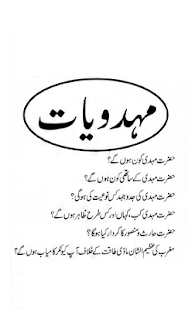 مہدویات
حضرت مہدی کون ہوں گے؟
حضرت مہدی کے ساتھی کون ہوں گے؟
حضرت مہدی کی جدوجہد کس نوعیت کی ہوگی؟
حضرت مہدی کب، کہاں اور کس طرح ظاہر ہوں گے؟
حضرت حارث و منصور کا کردار کیا ہوگا؟
مغرب کی عظیم الشان مادّی طاقت کے خلاف آپ کیونکر کامیاب ہوں گے؟